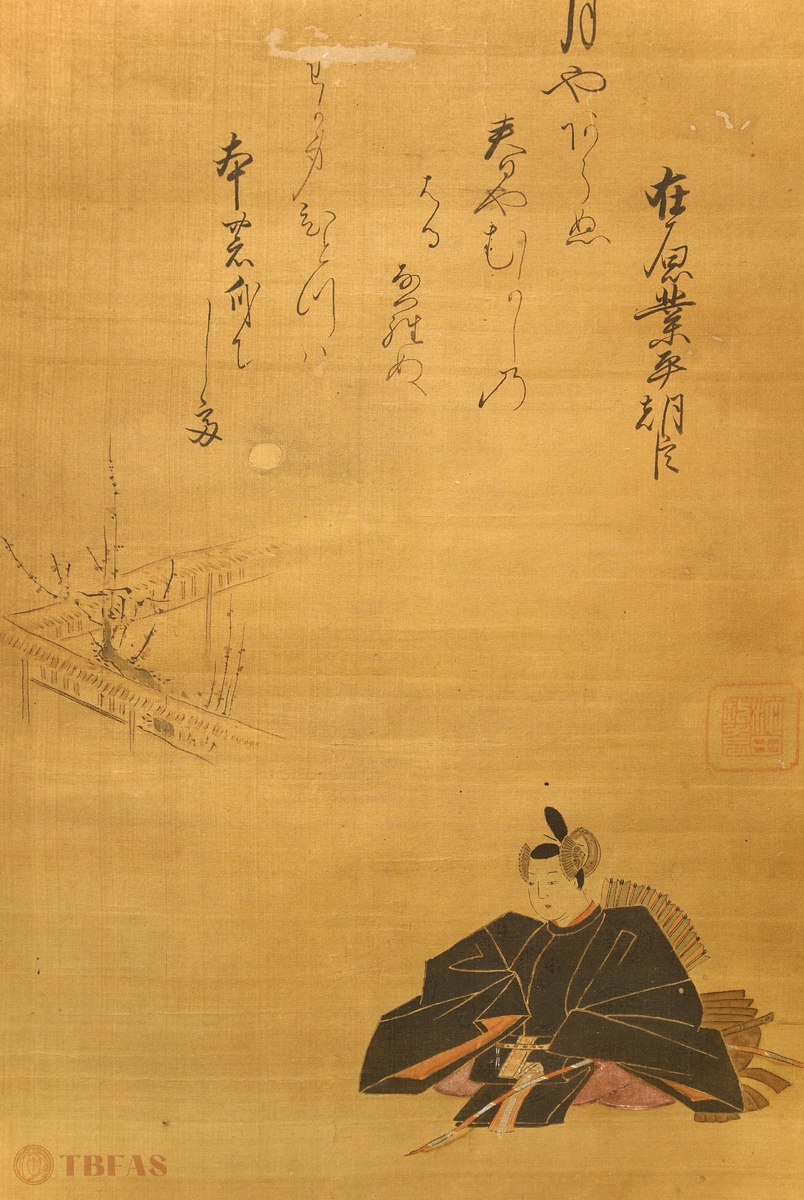 在原業平朝臣
月やあらぬ
春やむかし乃
はるな羅ぬ
わか身ひとつハ
本農身にして
TBFAS